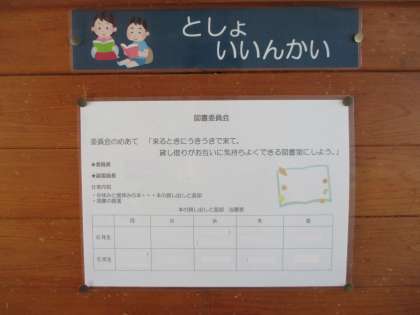 としょ
いいんかい
図書委員会
委員会のめあて 「来るときにうきうきで来て、
貸し借りがお互いに気持ちよくできる図書室にしよう。」
★委員長
★副委員長
仕事内容
本の貸し出しと返却 当番表
月 火 水 木 金
６年生
５年生